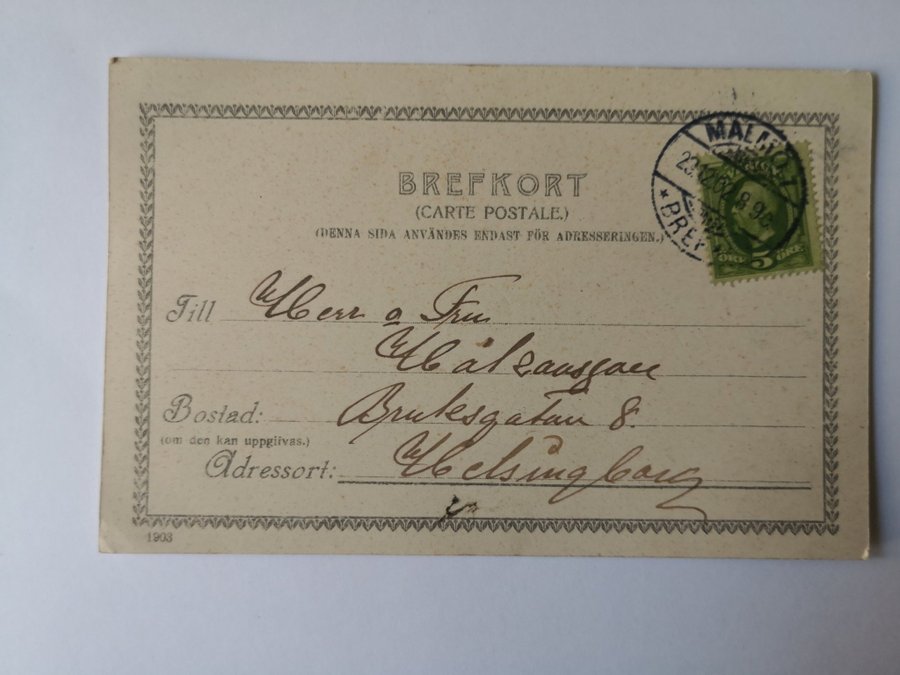 BREFKORT
(CARTE POSTALE.)
(DENNA SIDA ANVÄNDES ENDAST FÖR ADRESSERINGEN.)
MALMÖ
5
ÖRE
Till Herr o Fru
Bostad: Bruksgatan 8.
(om den kan uppgifvas.)
Adressort: Helsingborg
1903